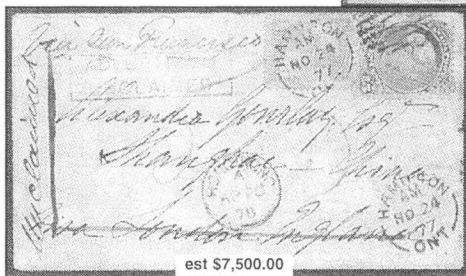 Via San Francisco
HAMILTON
AM
NO 24
77
Unclaimed
Alexander
Shanghae - China
AP 20
78
HAMILTON
AM
NO 24
77
ONT
Via London England
est $7,500.00